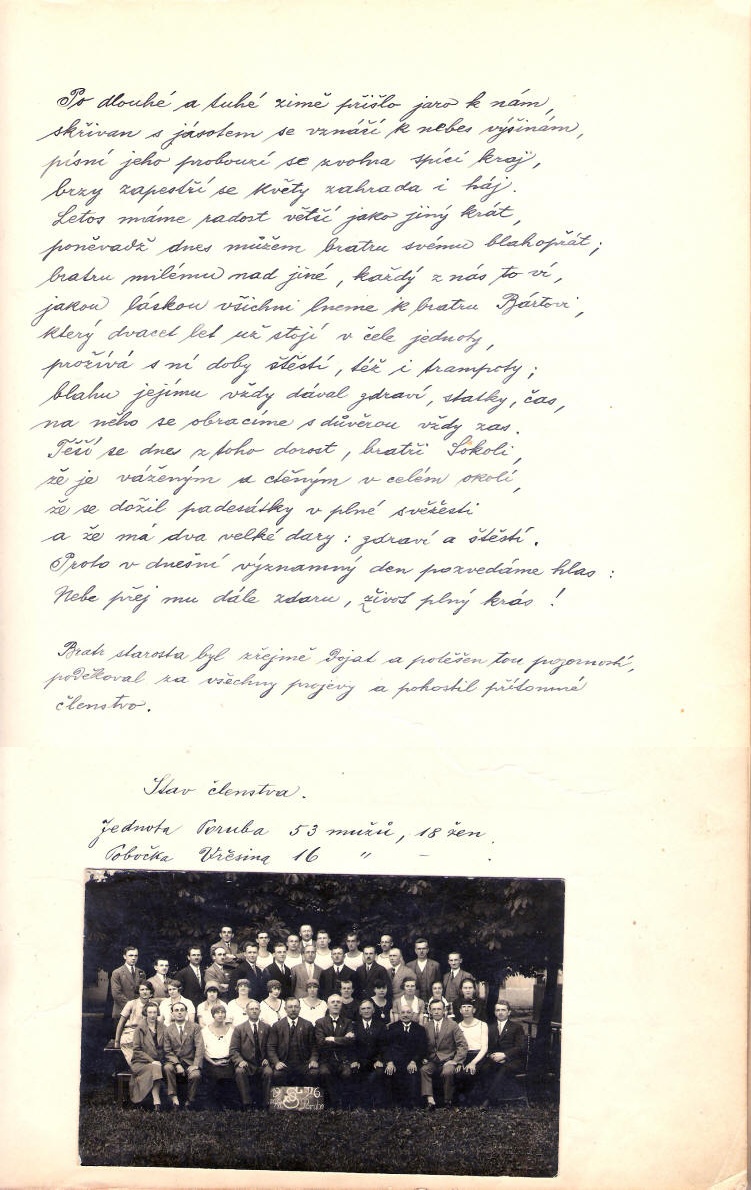 Po dlouhé a tuhé zimě přišlo jaro k nám,
skřivan s jásotem se vznáší k nebes výšinám,
písní jeho probouzí se zvolna spící kraj,
brzy zapestří se květy zahrada i háj.
Letos máme radost větší jako jiný krát,
poněvadž dnes můžem bratru svému blahopřát;
bratru milému nad jiné, každý z nás to ví,
jakou láskou všichni lneme k bratru Bártovi,
který dvacet let už stojí v čele jednoty,
prožívá s ní doby štěstí, též i trampoty;
blahu jejímu vždy dával zdraví, statky, čas,
na něho se obracíme s důvěrou vždy zas.
Těší se dnes z toho dorost, bratři Sokoli,
že je váženým a ctěným v celém okolí,
že se dožil padesátky v plné svěžesti
a že má dva velké dary: zdraví a štěstí.
Proto v dnešní významný den pozvedáme hlas:
Nebe přej mu dále zdaru, život plný krás!
Bratr starosta byl zřejmě dojat a potěšen tou pozorností,
poděkoval za všechny projevy a pohostil přítomné
členstvo.
Stav členstva.
Jednota Poruba 53 mužů, 18 žen.
Pobočka Vřesina 16 " - .
19 26
Poruba